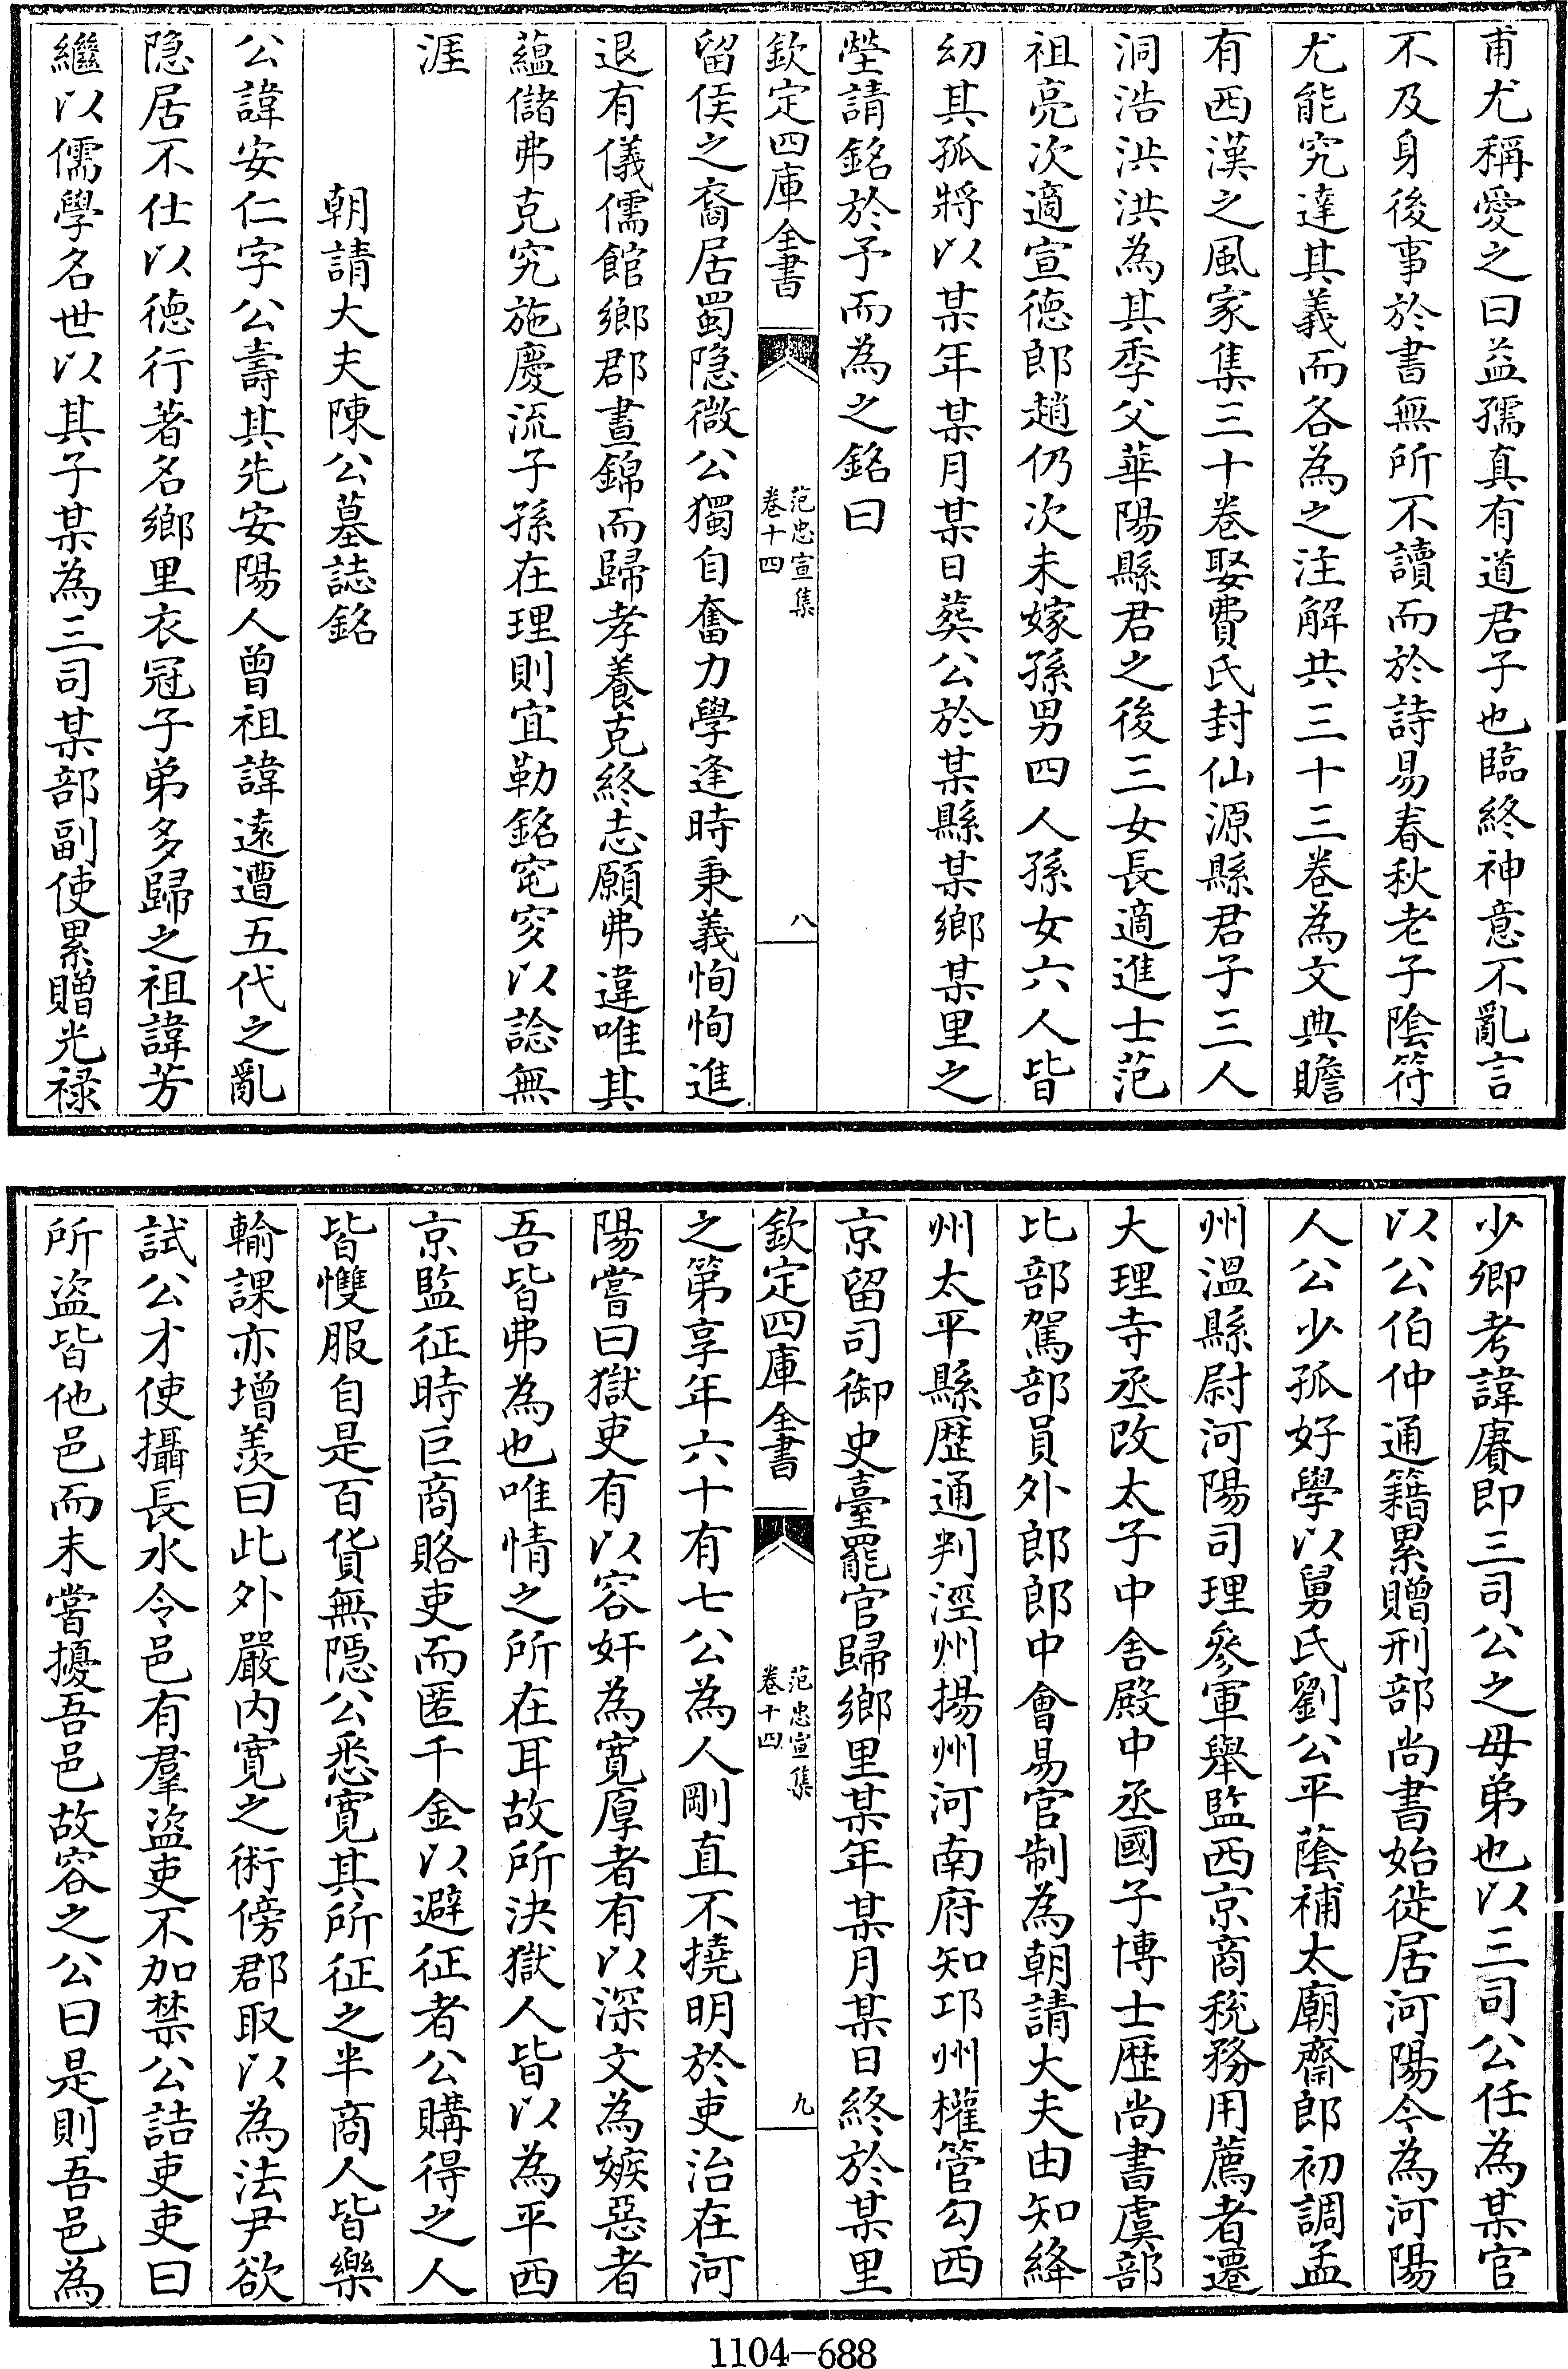 甫尤稱愛之曰益孺真有道君子也臨終神意不亂言
不及身後事於書無所不讀而於詩易春秋老子陰符
尤能究達其義而各為之注解共三十三卷為文典贍
有西漢之風家集三十卷娶費氏封仙源縣君子三人
洞浩洪洪為其季父華陽縣君之後三女長適進士范
祖亮次適宣德郎趙仍次未嫁孫男四人孫女六人皆
幼其孤將以某年某月某日葬公於某縣某鄉某里之
塋請銘於予而為之銘曰
欽定四庫全書
范忠宣集
卷十四
八
留侯之裔居蜀隐微公獨自奮力學逢時秉義恂恂進
退有儀儒館鄉郡晝錦而歸孝養克終志願弗違唯其
蘊儲弗克究施慶流子孫在理則宜勒銘窀穸以諗無
涯
朝請大夫陳公墓誌銘
公諱安仁字公壽其先安陽人曾祖諱遠遭五代之亂
隐居不仕以德行著名鄉里衣冠子弟多歸之祖諱芳
繼以儒學名世以其子某為三司某部副使累贈光禄
少卿考諱賡即三司公之母弟也以三司公任為某官
以公伯仲通籍累贈刑部尚書始徙居河陽今為河陽
人公少孤好學以舅氏劉公平蔭補太廟齋郎初調孟
州溫縣尉河陽司理參軍舉監西京商稅務用薦者遷
大理寺丞改太子中舍殿中丞國子博士歷尚書虞部
比部駕部員外郎郎中會易官制為朝請大夫由知絳
州太平縣歷通判涇州揚州河南府知邛州權管勾西
京留司御史臺罷官歸鄉里某年某月某日終於某里
欽定四庫全書
范忠宣集
卷十四
九
之第享年六十有七公為人剛直不撓明於吏治在河
陽嘗曰獄吏有以容奸為寛厚者有以深文為嫉惡者
吾皆弗為也唯情之所在耳故所決獄人皆以為平西
京監征時巨商賂吏而匿千金以避征者公購得之人
皆戄服自是百貨無隱公悉寛其所征之半商人皆樂
輸課亦增羨曰此外嚴内寛之術傍郡取以為法尹欲
試公才使攝長水令邑有羣盜吏不加禁公詰吏吏曰
所盜皆他邑而未嘗擾吾邑故容之公曰是則吾邑為
1104-688